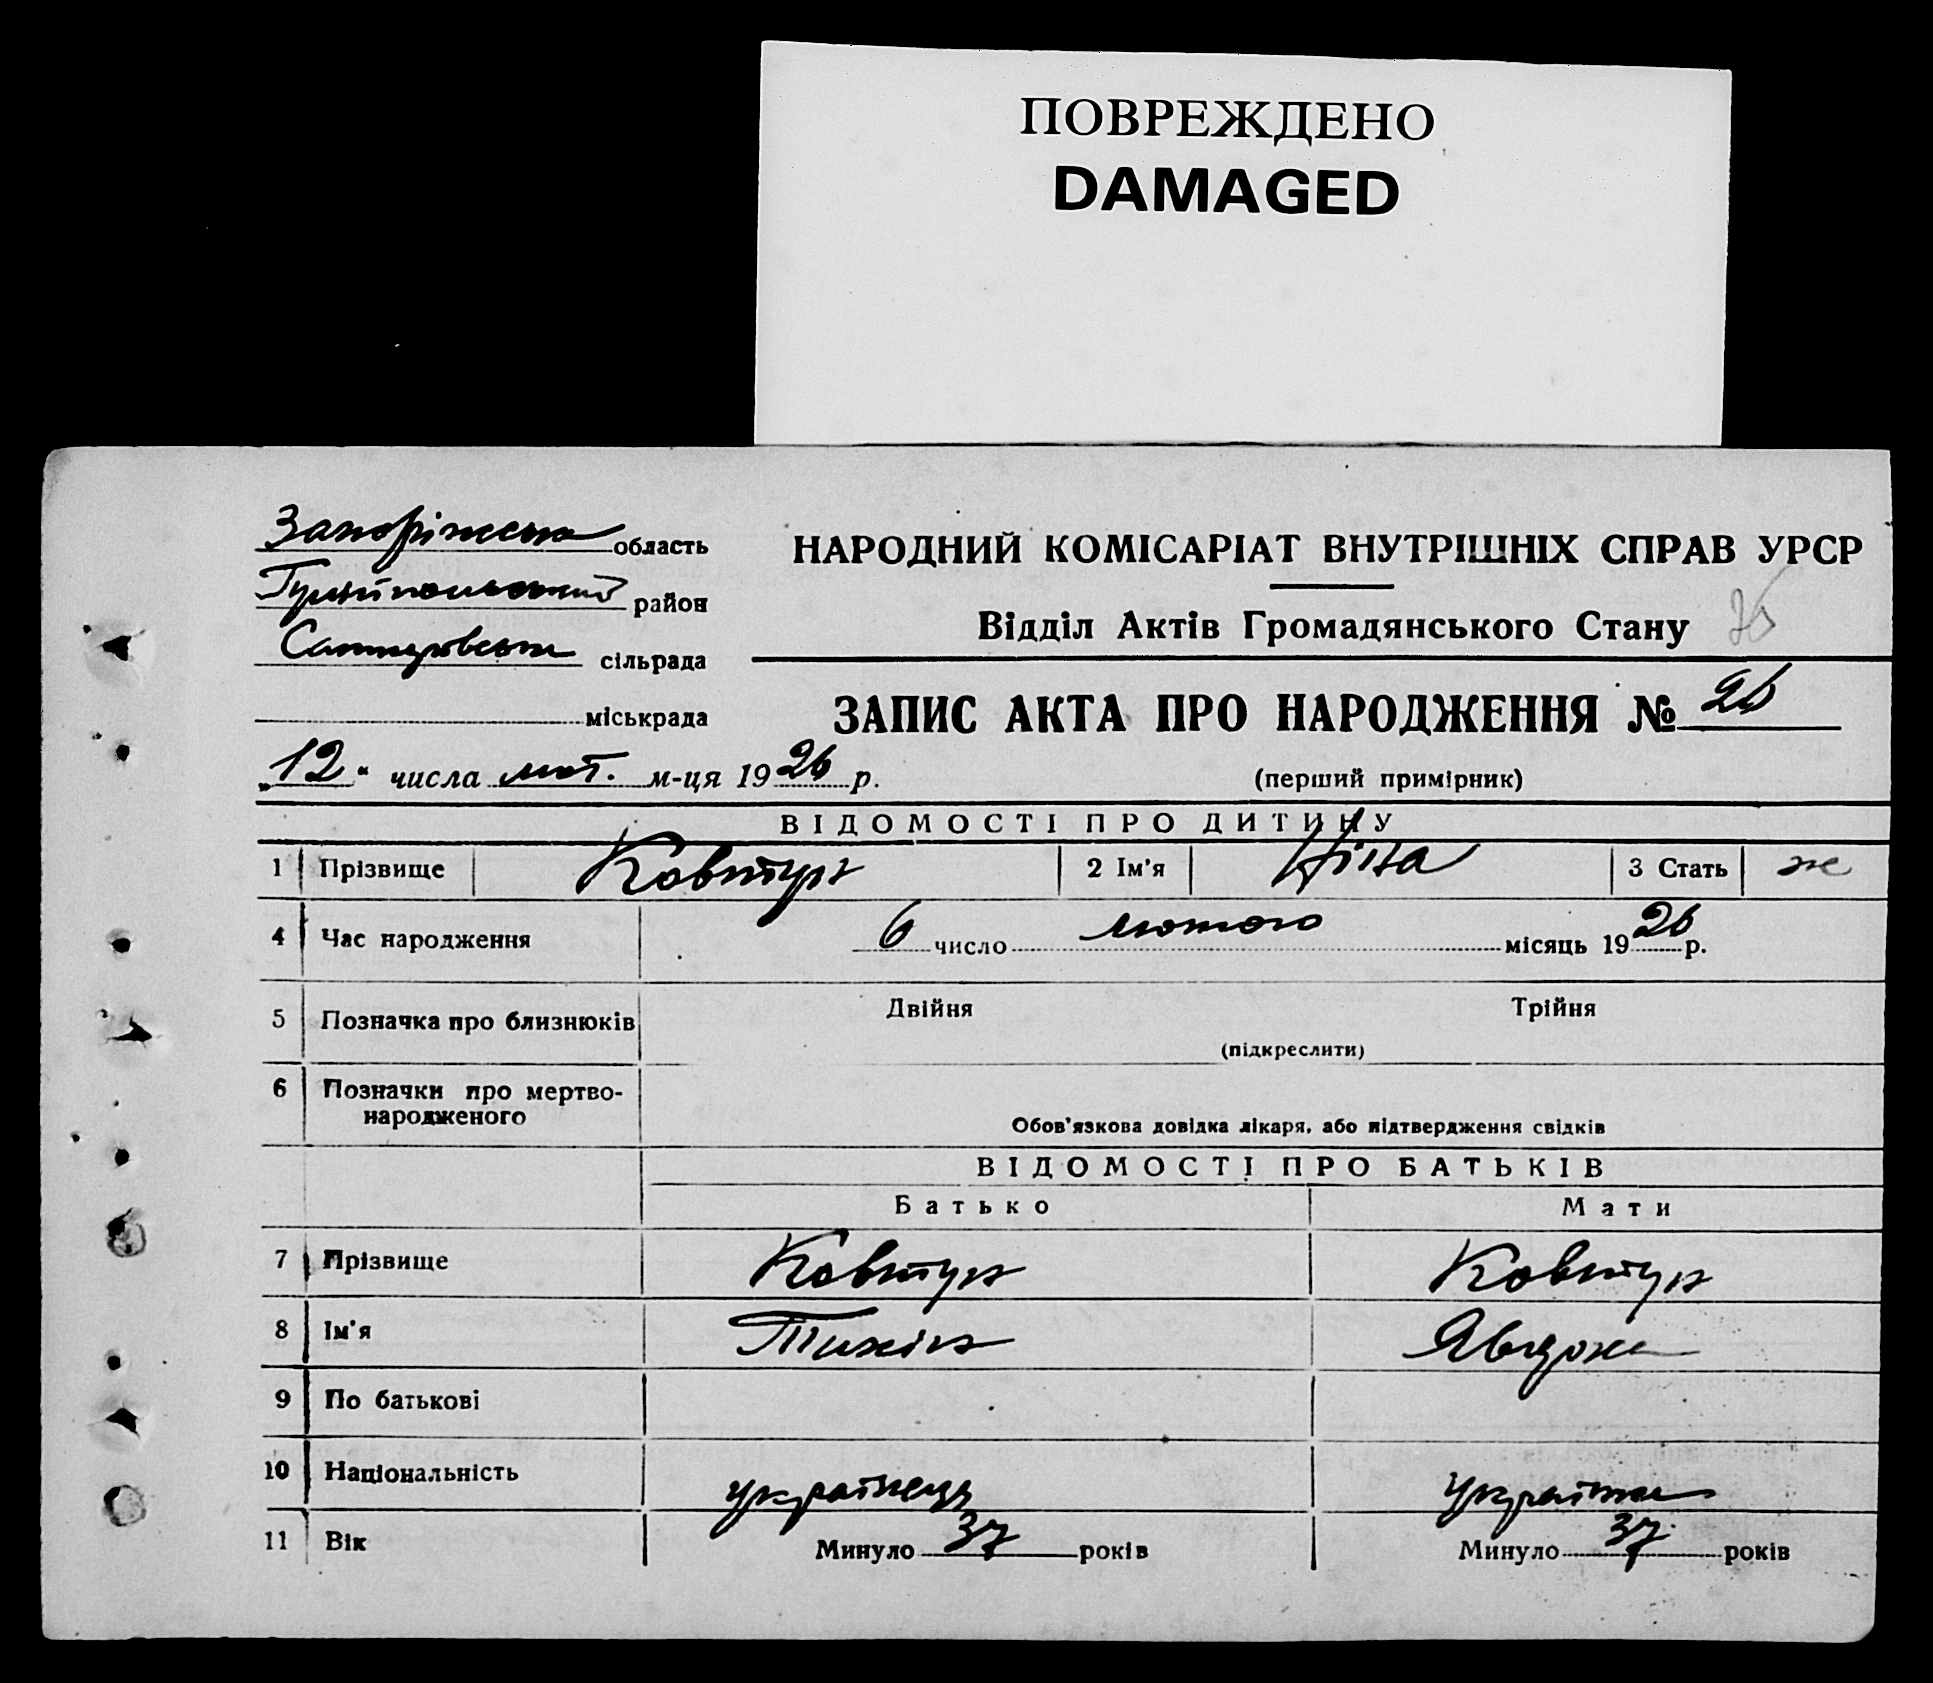 ПОВРЕЖДЕНО
DAMAGED
Запоріжська область
Гуляйпольський район
Санжаровська сільрада
міськрада
„12“ числа лют. м-ця 1926 р.
НАРОДНИЙ КОМІСАРІАТ ВНУТРІШНІХ СПРАВ УРСР
Відділ Актів Громадянського Стану
ЗАПИС АКТА ПРО НАРОДЖЕННЯ № 26
(перший примірник)
ВІДОМОСТІ ПРО ДИТИНУ
1 Прізвище Ковтун 2 Ім'я Ніна 3 Стать ж
4 Час народження 6 число лютого місяць 1926 р.
5 Позначка про близнюків Двійня Трійня
(підкреслити)
6 Позначки про мертво-
народженого
Обов'язкова довідка лікаря, або підтвердження свідків
ВІДОМОСТІ ПРО БАТЬКІВ
Батько Мати
7 Прізвище Ковтун Ковтун
8 Ім'я Тихін Явдоха
9 По батькові
10 Національність українець українка
11 Вік Минуло 37 років Минуло 37 років